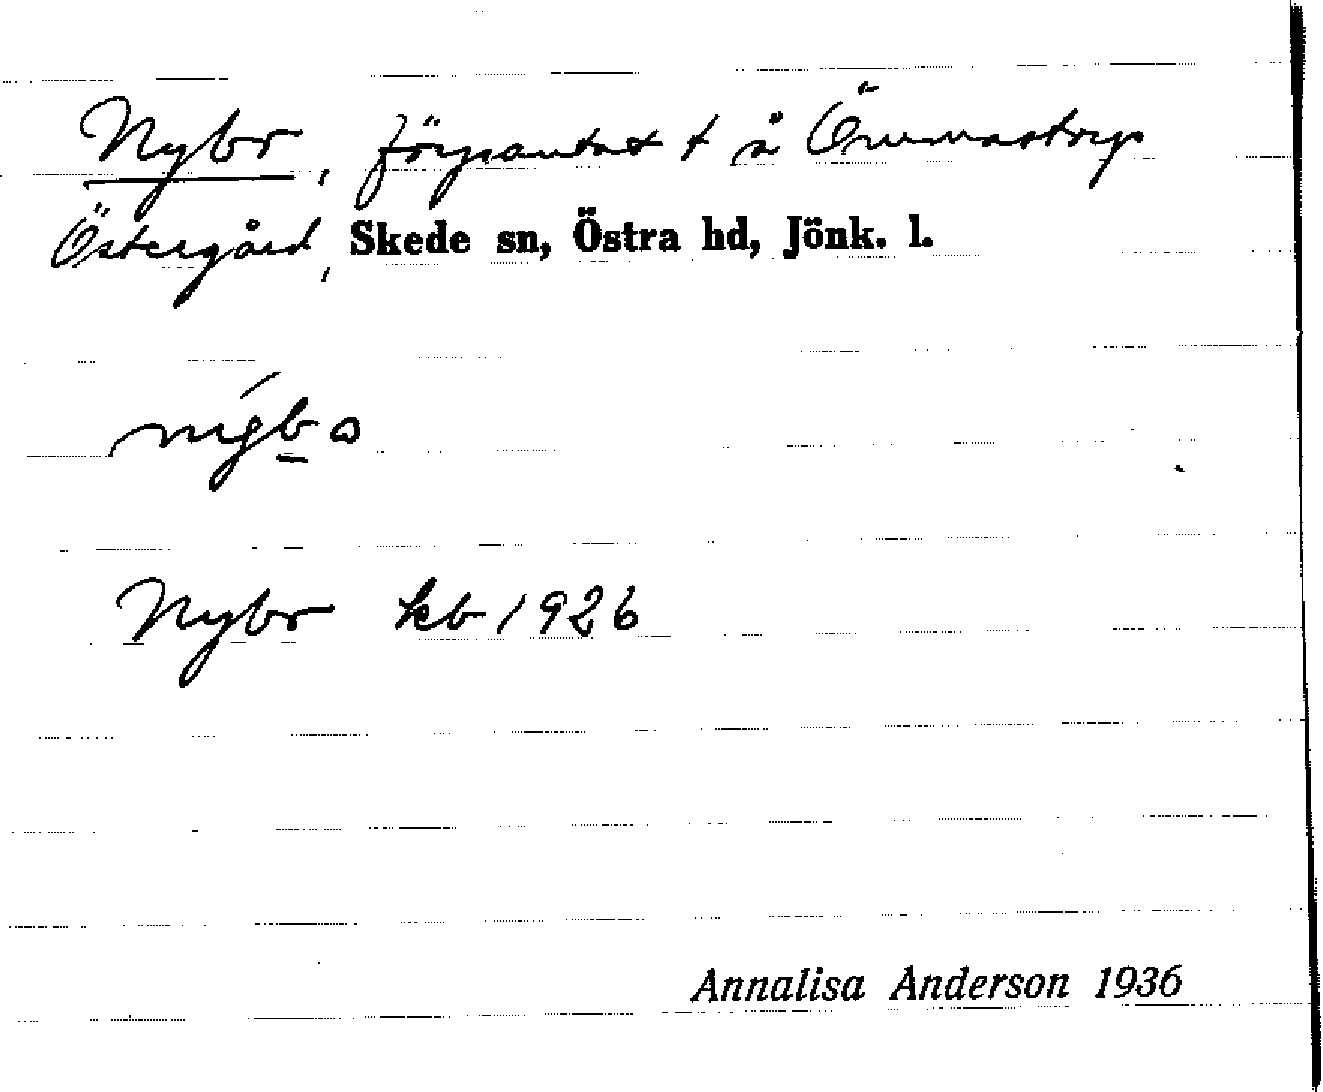 Nybo, förpantat t å Ömmastorp
Östergård, Skede sn, Östra hd, Jönk. l.
Nybo kb 1926
Annalisa Anderson 1936